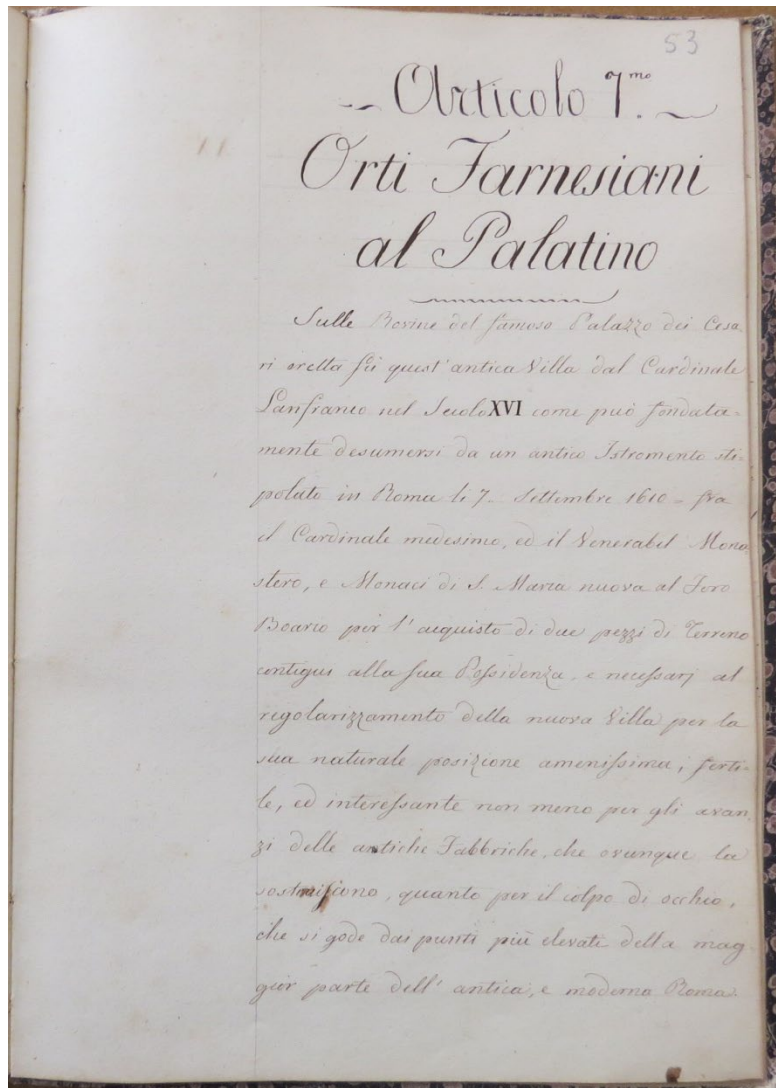 53
Articolo 7.mo
Orti Farnesiani
al Palatino
Sulle Rovine del famoso Palazzo dei Cesa-
ri eretta fù quest'antica Villa dal Cardinale
Lanfranco nel Secolo XVI come può fondata-
mente desumersi da un antico Istromento sti-
polato in Roma li 7. Settembre 1610 - fra
il Cardinale medesimo, ed il Venerabel Mona-
stero, e Monaci di S. Maria nuova al Foro
Boario per l'acquisto di due pezzi di Terreno
contigui alla sua Possidenza, e necessarj al
regolarizzamento della nuova Villa per la
sua naturale posizione amenissima, ferti-
le, ed interessante non meno per gli avan-
zi delle antiche Fabbriche, che ovunque la
, quanto per il colpo di occhio,
che si gode dai punti più elevati della mag-
gior parte dell'antica, e moderna Roma.